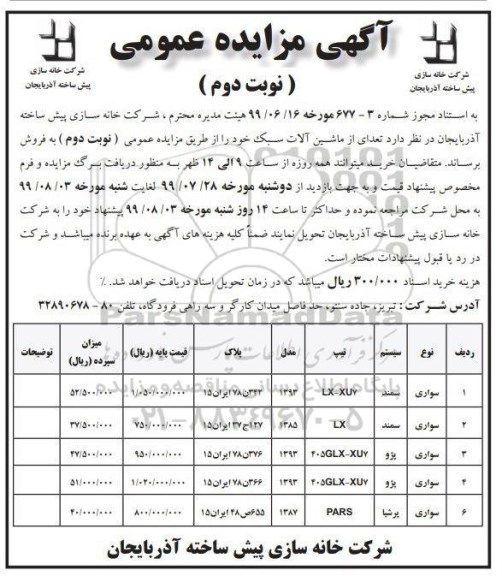 آگهی مزایده عمومی
( نوبت دوم )
شرکت خانه سازی
پیش ساخته آذربایجان
شرکت خانه سازی
پیش ساخته آذربایجان
به استناد مجوز شماره ۳ - ۶۷۷ مورخه ۱۶/ ۰۶/ ۹۹ هیئت مدیره محترم ، شرکت خانه سازی پیش ساخته
آذربایجان در نظر دارد تعدای از ماشین آلات سبک خود را از طریق مزایده عمومی ( نوبت دوم ) به فروش
برساند. متقاضیان خرید میتوانند همه روزه از ساعت ۹ الی ۱۴ ظهر به منظور دریافت برگ مزایده و فرم
مخصوص پیشنهاد قیمت و به جهت بازدید از دوشنبه مورخه ۲۸/ ۰۷/ ۹۹ لغایت شنبه مورخه ۰۳/ ۰۸/ ۹۹
به محل شرکت مراجعه نموده و حداکثر تا ساعت ۱۴ روز شنبه مورخه ۰۳/ ۰۸/ ۹۹ پیشنهاد خود را به شرکت
خانه سازی پیش ساخته آذربایجان تحویل نمایند ضمناً کلیه هزینه های آگهی به عهده برنده میباشد و شرکت
در رد یا قبول پیشنهادات مختار است.
هزینه خرید اسناد ۳۰۰/۰۰۰ ریال میباشد که در زمان تحویل اسناد دریافت خواهد شد. ٪
آدرس شرکت : تبریز، جاده سنتو، حد فاصل میدان کارگر و سه راهی فرودگاه، تلفن ۸۰ - ۳۲۸۹۰۶۷۸
ردیف نوع سیستم تیپ مدل پلاک قیمت پایه (ریال) میزان سپرده (ریال) توضیحات
۱ سواری سمند LX-XU۷ ۱۳۹۳ ۳۴۳ن۷۸ ایران۱۵ ۱/۰۵۰/۰۰۰/۰۰۰ ۵۲/۵۰۰/۰۰۰
۲ سواری سمند LX ۱۳۸۵ ۱۲۷ج۳۷ ایران۱۵ ۷۵۰/۰۰۰/۰۰۰ ۳۷/۵۰۰/۰۰۰
۳ سواری پژو ۴۰۵GLX-XU۷ ۱۳۹۳ ۳۷۶ن۷۸ ایران۱۵ ۹۵۰/۰۰۰/۰۰۰ ۴۷/۵۰۰/۰۰۰
۴ سواری پژو ۴۰۵GLX-XU۷ ۱۳۹۳ ۳۶۶ن۷۸ ایران۱۵ ۱/۰۲۰/۰۰۰/۰۰۰ ۵۱/۰۰۰/۰۰۰
۶ سواری پرشیا PARS ۱۳۸۷ ۶۵۵ص۴۸ ایران۱۵ ۸۰۰/۰۰۰/۰۰۰ ۴۰/۰۰۰/۰۰۰
ParsNamadData
پایگاه اطلاع رسانی مناقصه و مزایده
۰۲۱-۸۸۳۴۹۶۷۰-۵
شرکت خانه سازی پیش ساخته آذربایجان